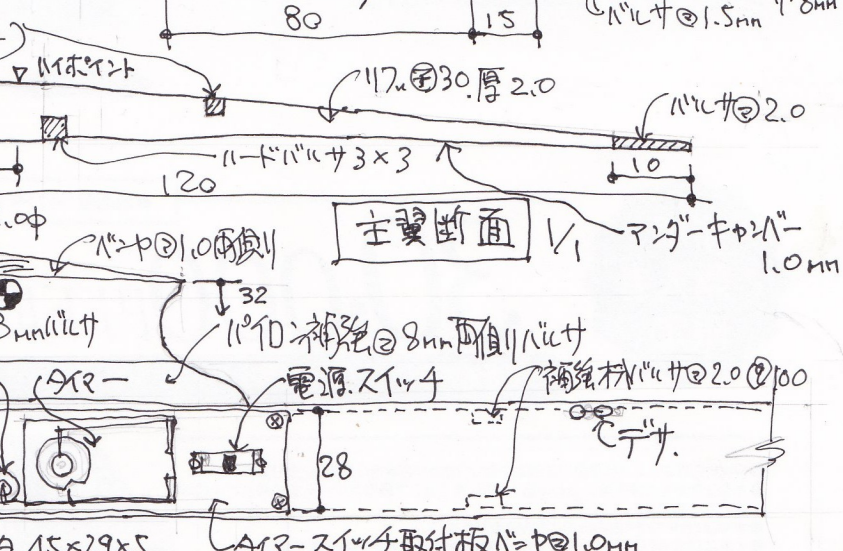 80
15
バルサ㋣1.5mm
ハイポイント
リブ ㋠30.厚2.0
バルサ㋣2.0
ハードバルサ3×3
10
120
主翼断面
1/1
アンダーキャンバー
1.0mm
ベニヤ㋣1.0両側
32
mmバルサ
パイロン補強㋣8mm両側バルサ
タイマー
電源スイッチ
補強材バルサ㋣2.0
100
デサ.
28
タイマースイッチ取付板ベニヤ㋣1.0mm